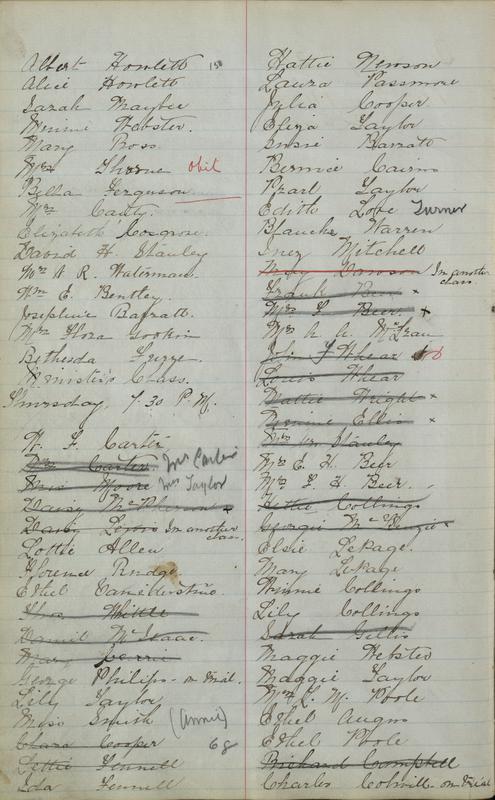 Albert Howlett 150
Alice Howlett
Sarah Maybee
Minnie Webster.
Mary Ross
Mrs Thorne obit
Bella Ferguson
Mrs Canty.
Elizabeth Cosgrove.
David H. Stanley
Mrs A R. Waterman
Wm E. Bentley.
Josephine Barratt.
Mrs Flora
Bethesda
Minister's Class.
Thursday, 7.30 P.M.
H. F. Carter
Mrs Carter Mrs Carter
Miss Moore Mrs Taylor
Daisy McPherson x
Daisy Lewis In another class.
Lottie Allen
Florence Rudge
Ethel
Thos Whittle
Daniel McIsaac.
Mary
George Philips - on trial.
Lily Taylor
Miss Smith (Annie)
Clara Cooper 68
Lettie Fennell
Ida Fennell
Hattie Newson
Laura Passmore
Julia Cooper
Eliza Taylor
Susie Barratt
Bernice Cairns
Pearl Taylor
Edith Love Turner
Blanche Warren
Inez Mitchell
May Dawson In another class
Frank Beer x
Mrs F Beer. x
Mrs A. A. McLean
John F Whear
Lewis Whear
Hattie Wright x
Minnie Ellis x
Mrs Wm Stanley
Mrs E. H. Beer
Mrs F. H. Beer.
Hettie Collings
Georgie McKenzie x
Elsie LePage.
Mary LePage
Minnie Collings
Lily Collings
Sarah Gillis
Maggie Webster
Maggie Taylor
Mrs L. M. Poole
Ethel
Ethel Poole
Richard Campbell
Charles on trial